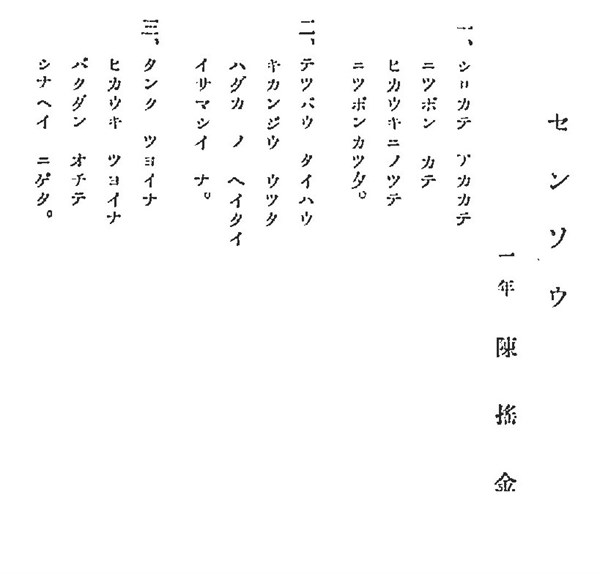 センソウ
一年 陳搖金
一、シロカテ アカカテ
ニツポン カテ
ヒカウキニノツテ
ニツポンカツタ。
二、テツパウ タイハウ
キカンジウ ウツタ
ハダカ ノ ヘイタイ
イサマシイ ナ。
三、タンク ツヨイナ
ヒカウキ ツヨイナ
バクダン オチテ
シナヘイ ニゲタ。